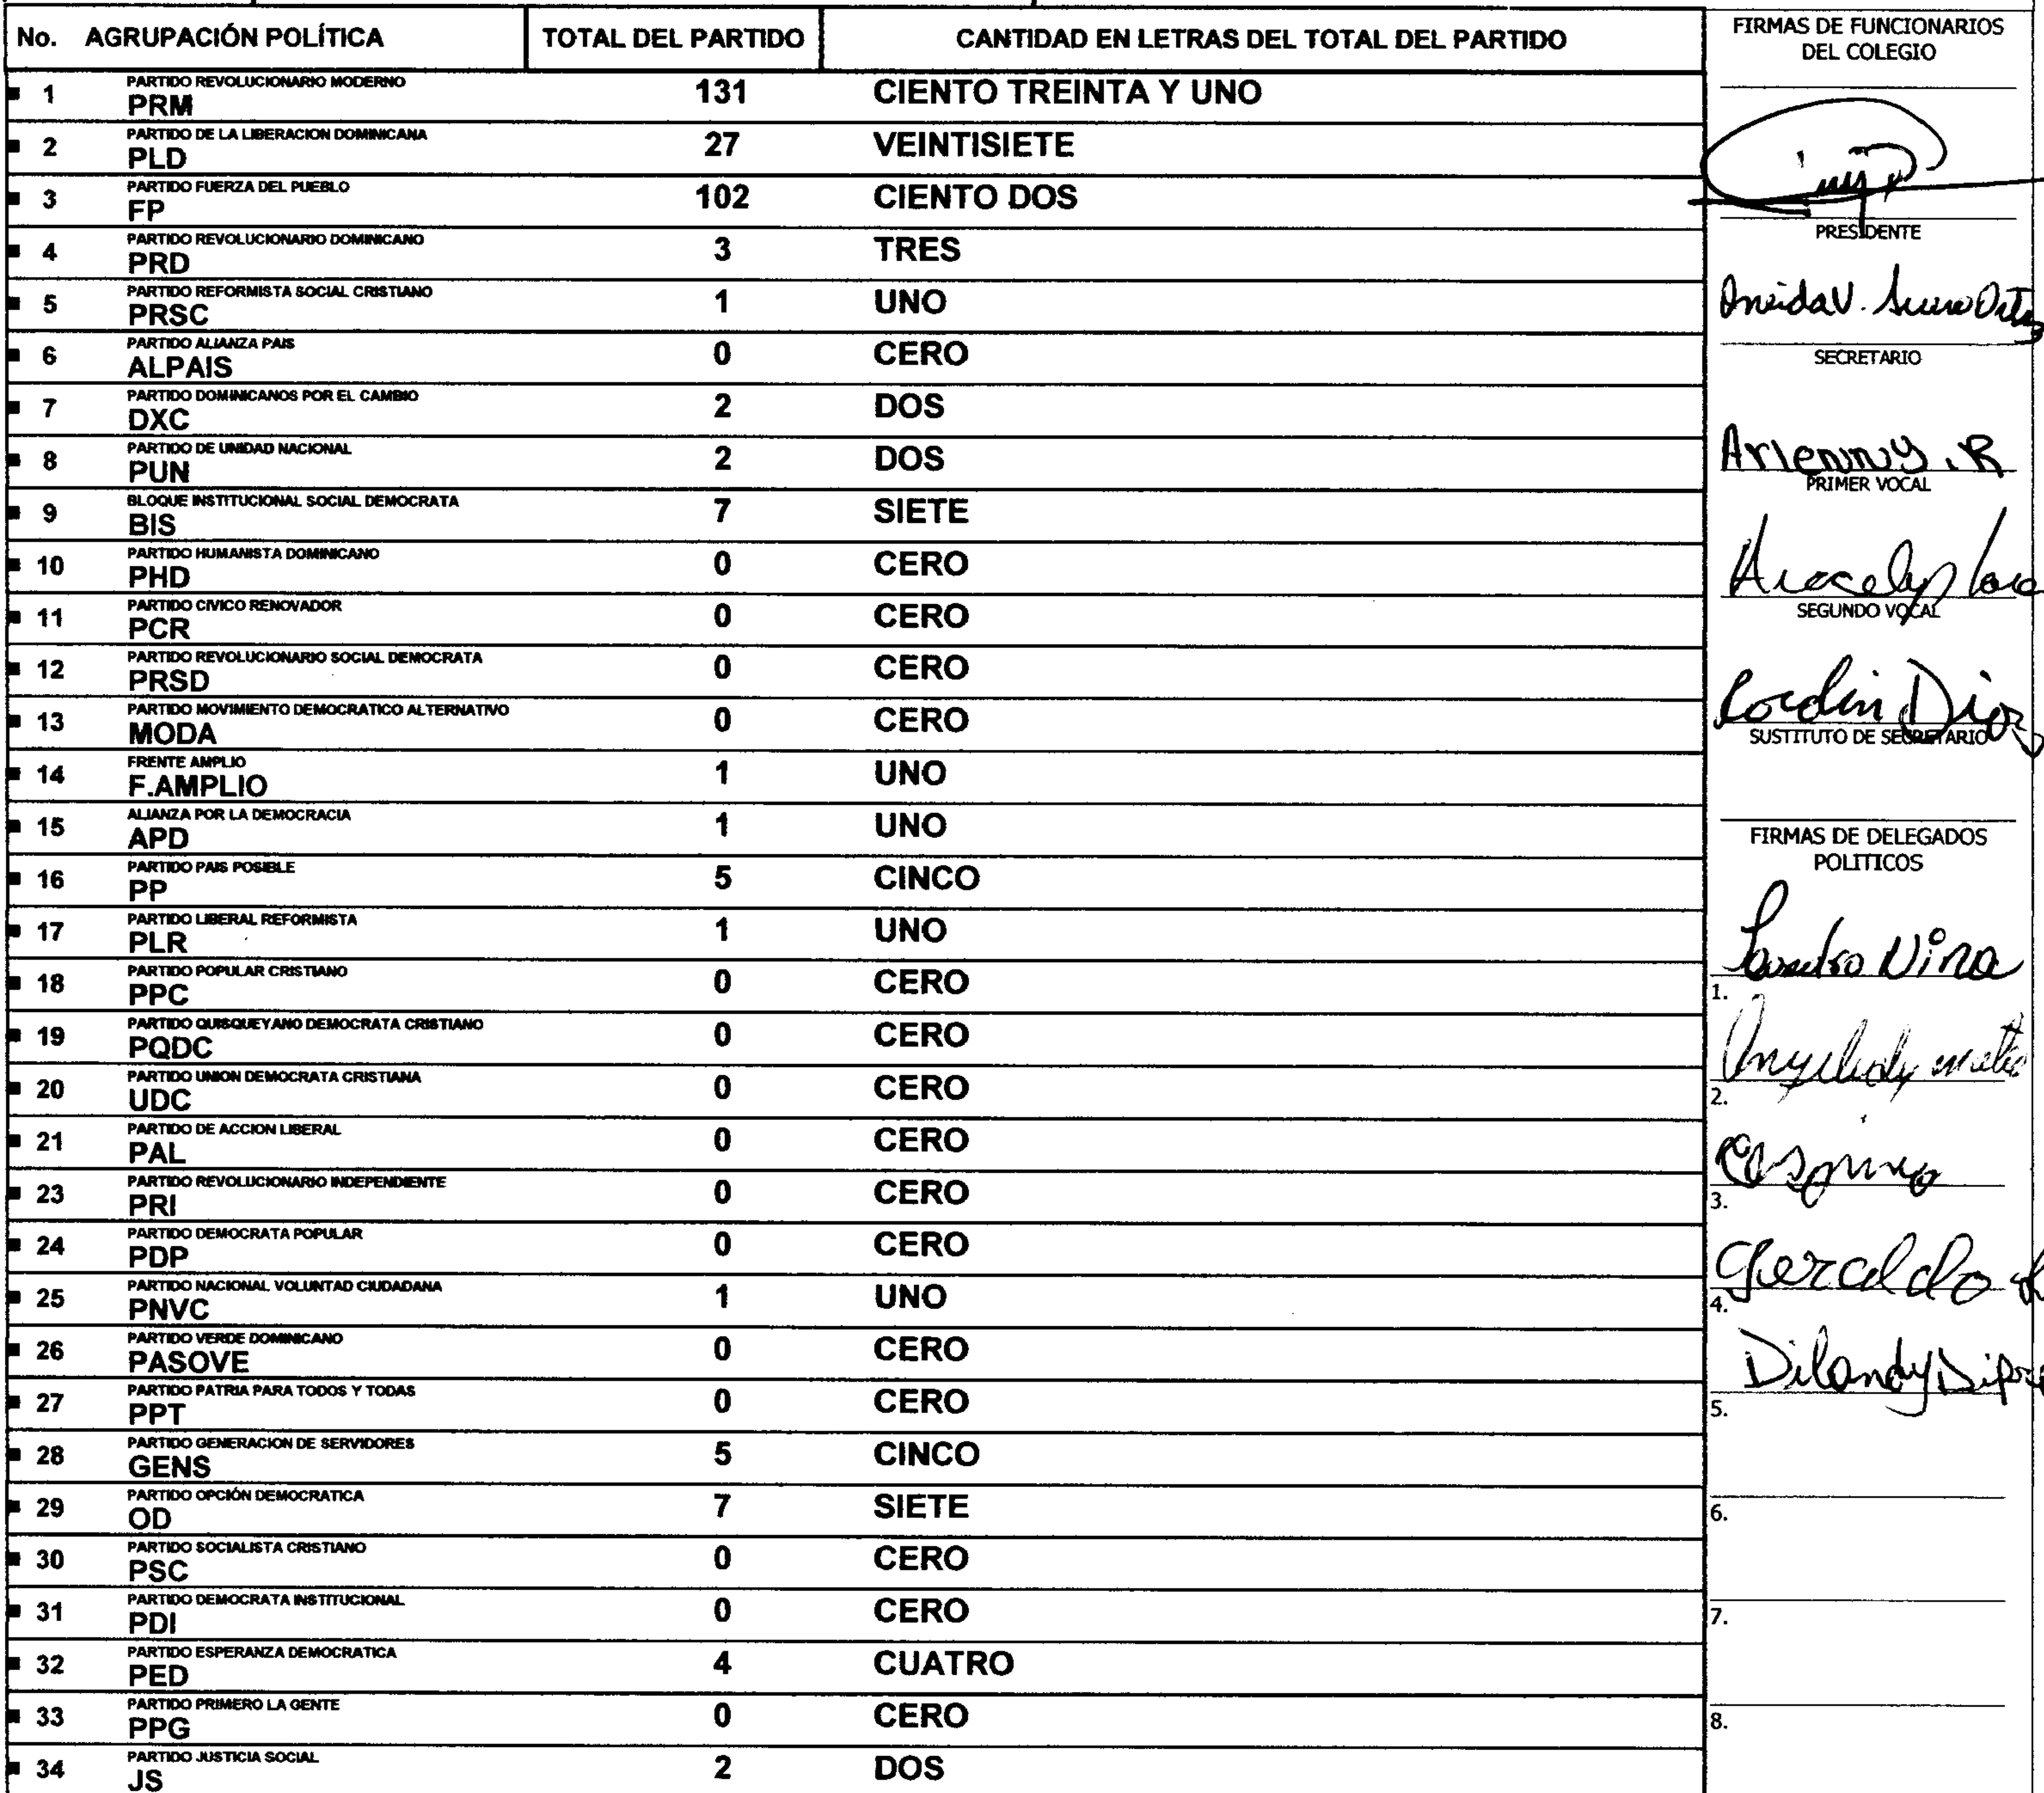 No. AGRUPACIÓN POLÍTICA TOTAL DEL PARTIDO CANTIDAD EN LETRAS DEL TOTAL DEL PARTIDO
PARTIDO REVOLUCIONARIO MODERNO
1 PRM 131 CIENTO TREINTA Y UNO
PARTIDO DE LA LIBERACION DOMINICANA
2 PLD 27 VEINTISIETE
PARTIDO FUERZA DEL PUEBLO
3 FP 102 CIENTO DOS
PARTIDO REVOLUCIONARIO DOMINICANO
4 PRD 3 TRES
PARTIDO REFORMISTA SOCIAL CRISTIANO
5 PRSC 1 UNO
PARTIDO ALIANZA PAIS
6 ALPAIS 0 CERO
PARTIDO DOMINICANOS POR EL CAMBIO
7 DXC 2 DOS
PARTIDO DE UNIDAD NACIONAL
8 PUN 2 DOS
BLOQUE INSTITUCIONAL SOCIAL DEMOCRATA
9 BIS 7 SIETE
PARTIDO HUMANISTA DOMINICANO
10 PHD 0 CERO
PARTIDO CIVICO RENOVADOR
11 PCR 0 CERO
PARTIDO REVOLUCIONARIO SOCIAL DEMOCRATA
12 PRSD 0 CERO
PARTIDO MOVIMIENTO DEMOCRATICO ALTERNATIVO
13 MODA 0 CERO
FRENTE AMPLIO
14 F.AMPLIO 1 UNO
ALIANZA POR LA DEMOCRACIA
15 APD 1 UNO
PARTIDO PAIS POSIBLE
16 PP 5 CINCO
PARTIDO LIBERAL REFORMISTA
17 PLR 1 UNO
PARTIDO POPULAR CRISTIANO
18 PPC 0 CERO
PARTIDO QUISQUEYANO DEMOCRATA CRISTIANO
19 PQDC 0 CERO
PARTIDO UNION DEMOCRATA CRISTIANA
20 UDC 0 CERO
PARTIDO DE ACCION LIBERAL
21 PAL 0 CERO
PARTIDO REVOLUCIONARIO INDEPENDIENTE
23 PRI 0 CERO
PARTIDO DEMOCRATA POPULAR
24 PDP 0 CERO
PARTIDO NACIONAL VOLUNTAD CIUDADANA
25 PNVC 1 UNO
PARTIDO VERDE DOMINICANO
26 PASOVE 0 CERO
PARTIDO PATRIA PARA TODOS Y TODAS
27 PPT 0 CERO
PARTIDO GENERACION DE SERVIDORES
28 GENS 5 CINCO
PARTIDO OPCIÓN DEMOCRATICA
29 OD 7 SIETE
PARTIDO SOCIALISTA CRISTIANO
30 PSC 0 CERO
PARTIDO DEMOCRATA INSTITUCIONAL
31 PDI 0 CERO
PARTIDO ESPERANZA DEMOCRATICA
32 PED 4 CUATRO
PARTIDO PRIMERO LA GENTE
33 PPG 0 CERO
PARTIDO JUSTICIA SOCIAL
34 JS 2 DOS
FIRMAS DE FUNCIONARIOS
DEL COLEGIO
PRESIDENTE
SECRETARIO
Arlenny. R
PRIMER VOCAL
SEGUNDO VOCAL
SUSTITUTO DE SECRETARIO
FIRMAS DE DELEGADOS
POLITICOS
1.
2.
3.
Geraldo
4.
Dilandy
5.
6.
7.
8.